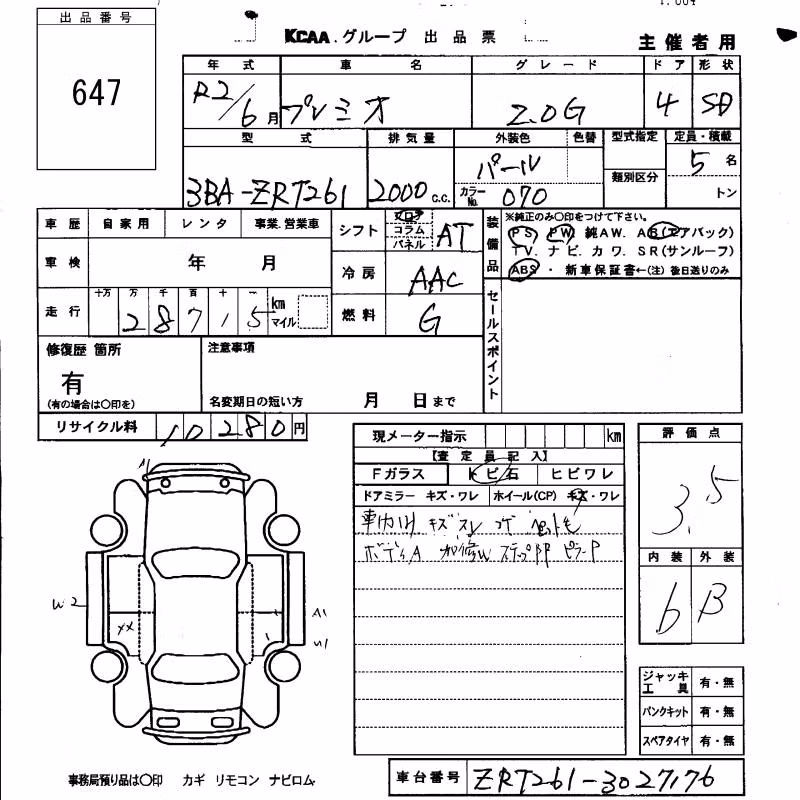 出品番号
647
KCAA.グループ 出品票
主催者用
年式 車名 グレード ドア 形状
R2/6月 プレミオ 2.0G 4 SD
型式 排気量 外装色 色替 型式指定 定員・積載
類別区分
3BA-ZRT261 2000c.c. パール 5名
カラーNo. 070 トン
車歴 自家用 レンタ 事業.営業車
シフト フロア コラム パネル AT
装備品
※純正のみ〇印をつけて下さい。
PS PW 純AW. AB(エアバック)
TV. ナビ. カワ. SR(サンルーフ)
ABS ・ 新車保証書←(注) 後日送りのみ
車検 年 月
冷房 AAC
走行 十万 万 千 百 十 一 km マイル
28715
燃料 G
セールスポイント
修復歴 箇所
有
(有の場合は〇印を)
注意事項
名変期日の短い方 月 日まで
リサイクル料 10280円
現メーター指示 km
【査定員記入】
Fガラス トビ石 ヒビワレ
ドアミラー キズ・ワレ ホイール(CP) キズ・ワレ
車内 キズ
ボディA
評価点
3.5
内装 外装
b B
W2
XX
A1
ジャッキ工具 有・無
パンクキット 有・無
スペアタイヤ 有・無
事務局預り品は〇印 カギ リモコン ナビロム
車台番号 ZRT261-3027176